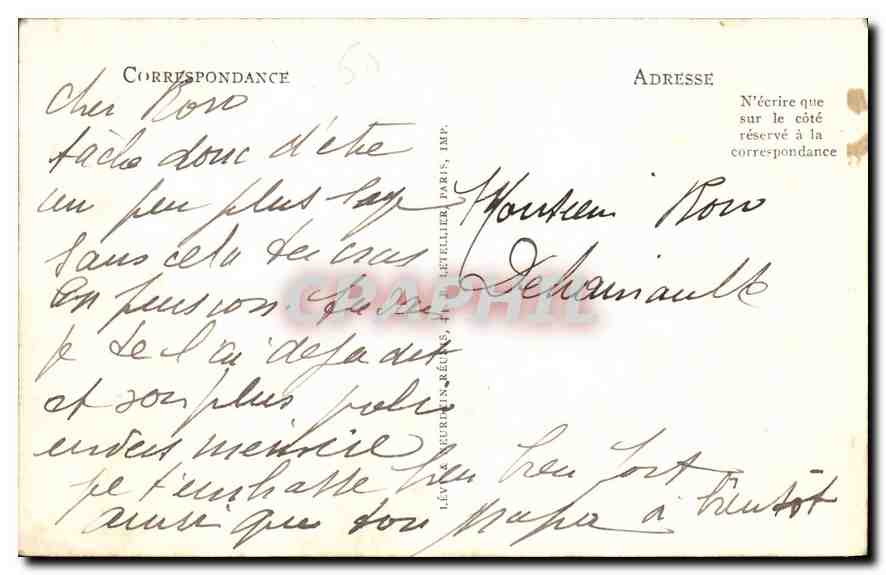 CORRESPONDANCE
50
cher Roro
tâche donc d'être
un peu plus sage
sans cela tu iras
en pension tu sais
je te l'ai deja dit
et sois plus poli
envers
je t'embrasse bien bien fort
ainsi que ton Papa à bientôt
LÉVY & NEURDEIN RÉUNIS, LETELLIER, PARIS, IMP.
ADRESSE
N'écrire que
sur le côté
réservé à la
correspondance
Monsieur Roro
Dehainault
CPAPHIL